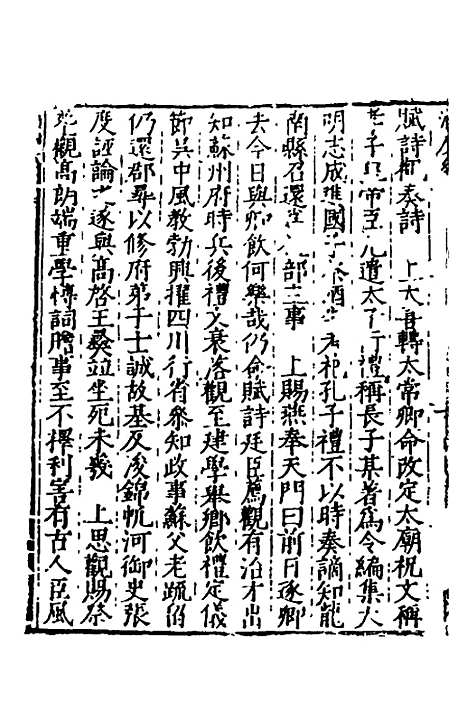 賦詩即奏詩　上大喜轉太常卿命改定太廟祝文稱
老子皇帝臣凡遣太子行禮稱長子某著為令編集大
明志成進國子祭酒以祀孔子禮不以時奏謫知龍
南縣召還部主事　上賜燕奉天門曰前日逐卿
去今日與卿飲何樂哉仍命賦詩廷臣薦觀有治才出
知蘇州府時兵後禮文衰落觀至建學舉鄉飲禮定儀
節吳中風教勃興擢四川行省叅知政事蘇父老疏留
仍還郡尋以修府第于士誠故基及浚錦帆河御史張
度誣論之遂與高啓王彝竝坐死未幾　上思觀賜祭
葬觀高朗端重學博詞贍事至不擇利害有古人臣風